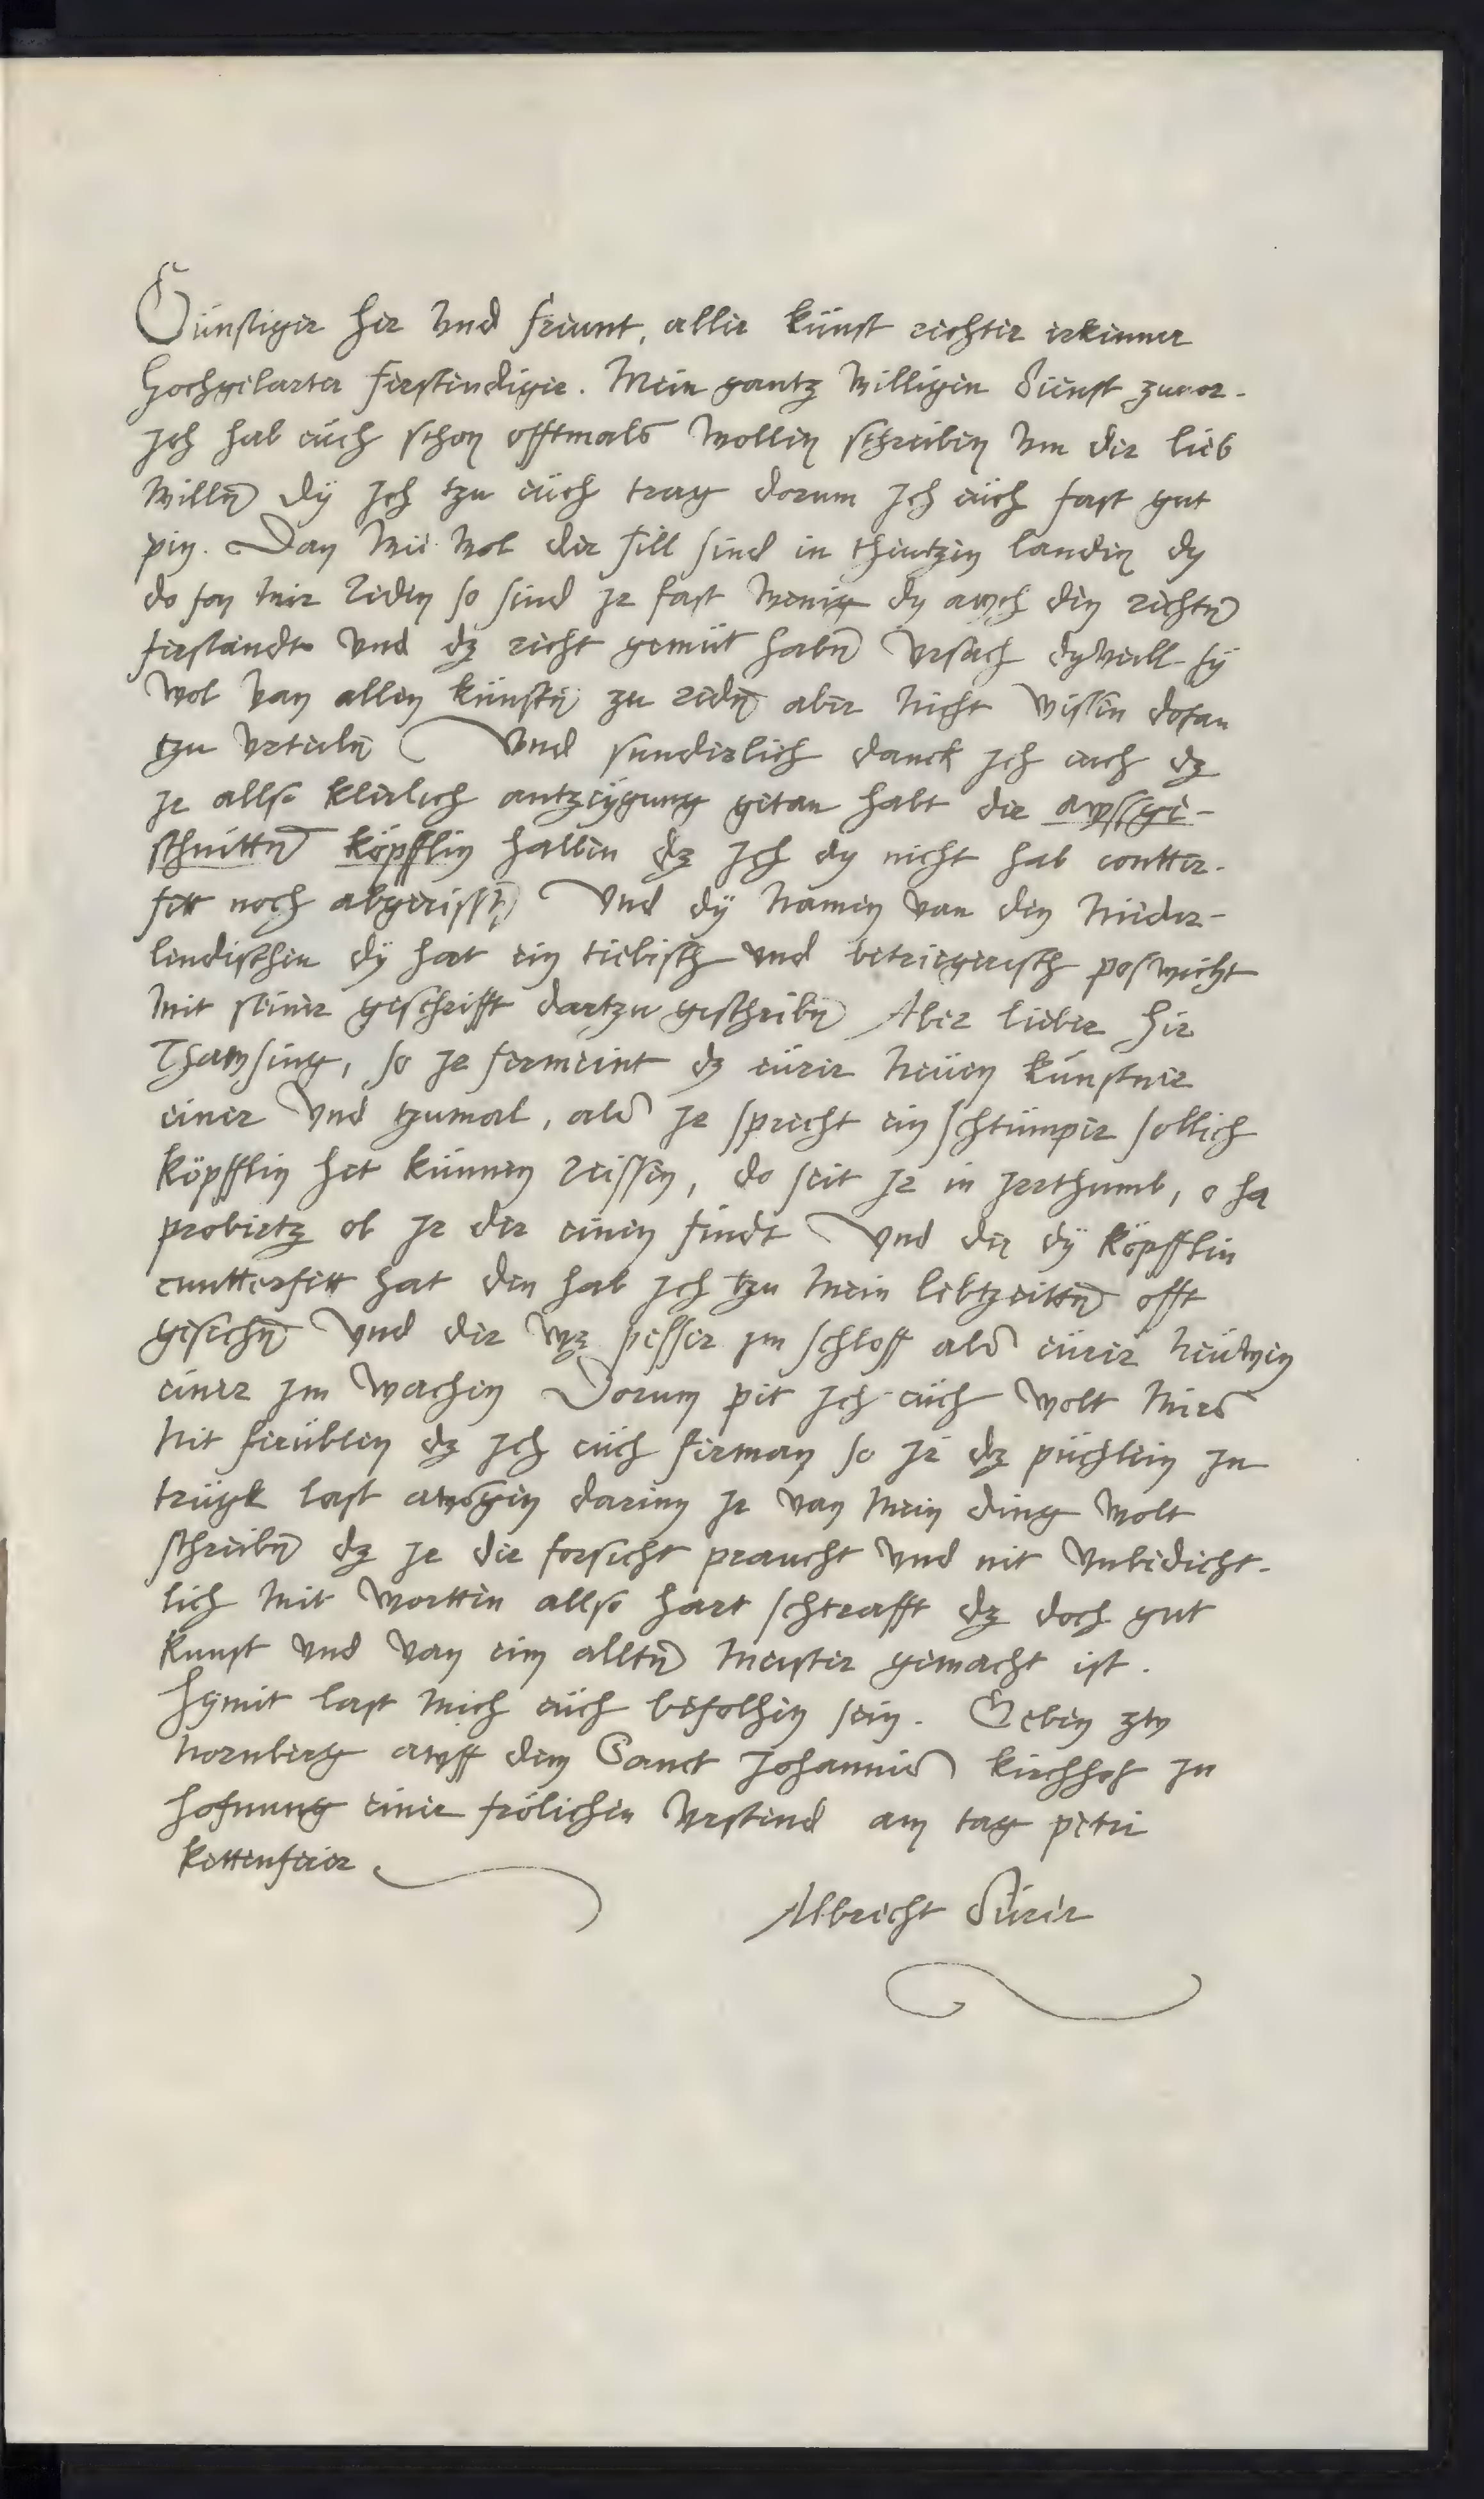 Günstiger her vnd freunt, aller künst rechter erkenner
hochgelarter ferstendiger. Mein gantz willigen dienst zuvor.
Jch hab euch schon offtmals wollen schreiben vm der lieb
willen dÿ Jch tzu eüch trag dorum Jch eüch fast gut
pin. Dan wie wol der fill sind in theutzen landen dy
do fon mir reden so sind Jr fast wenig dy awch den rechten
ferstandt vnd dz recht gemüt haben vrsach dyweill sÿ
wol van allen künsten zu reden aber nicht wissen dofan
tzu vrteilen Vnd sunderlich danck Jch euch dz
Jr allso klerlich antzeÿgung getan habt der awssge-
schnitten köpfflin halben dz Jch dy nicht hab contter-
fett noch abgerissen Vnd dÿ namen van den nider-
lendischen dÿ hat ein tiebisch vnd betriegerisch poswicht
mit seiner geschrifft dartzu geschriben Aber lieber her
Thawsing, so Jr fermeint dz eürer neüen künstner
einer vnd tzumal, als Jr sprecht ein schtümper sollich
köpfflin het künnen reissen, do seit Jr in Jrrthumb, o ha
probiertz ob Jr der einen findt Vnd der dÿ köpfflin
cuntterfett hat den hab Jch tzu mein lebtzeitten offt
gesechen vnd der wz pesser im schloff als eürer neüwen
einer Jm wachen Dorum pit Jch eüch wolt mirs
nit ferüblen dz Jch eüch ferman so Jr dz püchlein Jn
trügk last awsgen darinn Jr van mein ding wolt
schreiben dz Jr der forsicht praucht vnd nit vnbedicht-
lich mit wortten allso hart schtrafft dz doch gut
kunst vnd van eim allten meister gemacht ist.
Hÿmit last mich eüch befolhen sein. Geben zw
nornberg awff dem Sanct Johannis kirchhof Jn
hofnung einer frölichen vrstend am tag petri
kettenfeier
Albrecht Dürer